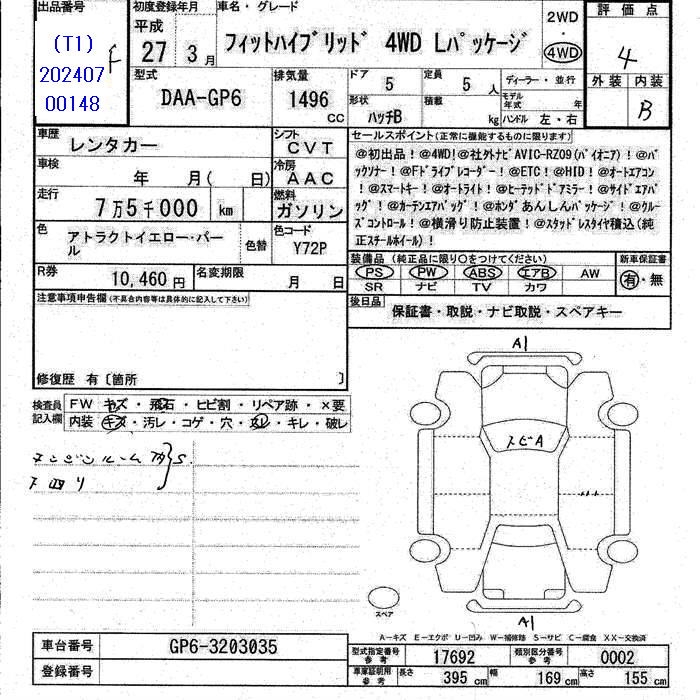 出品番号
(T1)
202407
00148
F
初度登録年月
平成
27年 3月
車名・グレード
フィットハイブリッド 4WD Lパッケージ
2WD
・
4WD
評価点
4
外装 内装
B
型式
DAA-GP6
排気量
1496 CC
ドア 5
定員 5人
ディーラー・並行
形状 ハッチB
積載 kg
モデル年式 年
ハンドル 左・右
車歴 レンタカー
シフト CVT
車検 年 月( 日)
冷房 AAC
走行 7万5千000 km
燃料 ガソリン
色 アトラクトイエロー・パール
色替
色コード Y72P
R券 10,460円
名変期限 月 日
セールスポイント(正常に機能するものに限ります)
@初出品!@4WD!@社外ナビAVIC-RZ09(パイオニア)!@バ
ックソナー!@Fドライブレコーダー!@ETC!@HID!@オートエアコン
!@スマートキー!@オートライト!@ヒーテッドドアミラー!@サイドエアバ
ッグ!@カーテンエアバッグ!@ホンダあんしんパッケージ!@クルー
ズコントロール!@横滑り防止装置!@スタッドレスタイヤ積込(純
正スチールホイール)!
装備品(純正品に限り〇をつけてください)
新車保証書
PS PW ABS エアB AW
SR ナビ TV カワ
有・無
後日品 保証書・取説・ナビ取説・スペアキー
注意事項申告欄(不具合内容等は具体的に記入して下さい)
修復歴 有〔箇所 〕
検査員記入欄
FW キズ・飛石・ヒビ割・リペア跡・×要
内装 キズ・汚レ・コゲ・穴・スレ・キレ・破レ
エンジンルーム内 S.
下回り
A1
スビA
A1
スペア
A-キズ E-エクボ U-凹み W-補修跡 S-サビ C-腐食 XX-交換済
車台番号 GP6-3203035
登録番号
型式指定番号 参考 17692
類別区分番号 参考 0002
車庫証明用 参考 長さ 395cm 幅 169cm 高さ 155cm